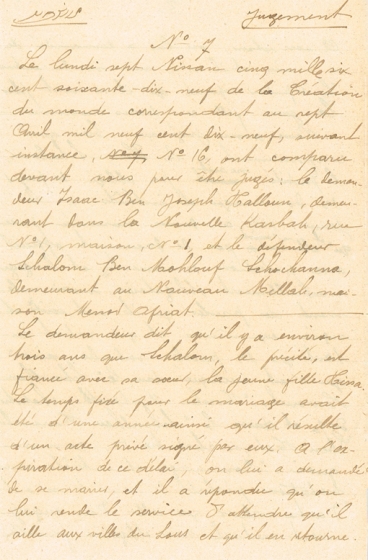 Jugement
No. 7
Le lundi sept Nissan cinq mille six
cent soixante-dix-neuf de la Création
du monde correspondant au sept
Avril mil neuf cent dix-neuf, suivant
instance, No 16, ont comparu
devant nous pour être jugés: le deman-
deur Isaac Ben Joseph Halloun, demeu-
rant dans la Nouvelle Kasbah, rue
No 1, maison, No 1, et le défendeur
Schaloum Ben Mokhlouf Schochanna,
demeurant au Nouveau Mellah, mai-
son Messod Afriat.
Le demandeur dit qu'il y a environ
trois ans que Schaloum, le précité, est
fiancé avec sa sœur, la jeune fille
Le temps fixé pour le mariage avait
été d'une année ainsi qu'il résulte
d'un acte privé signé par eux. A l'ex-
piration de ce délai, on lui a demandé
de se marier, et il a répondu qu'on
lui rende le service d'attendre qu'il
aille aux villes du Sous et qu'il en retourne.